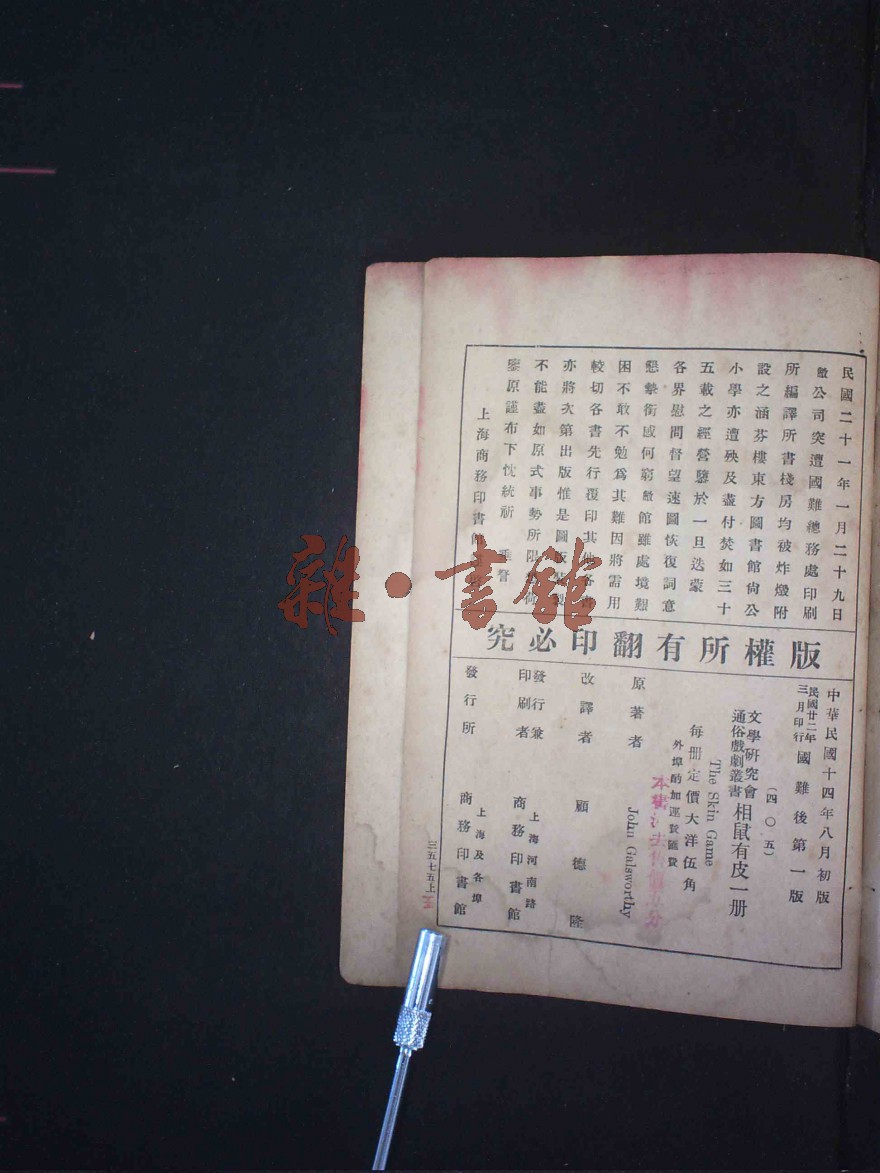 民國二十一年一月二十九日
敝公司突遭國難總務處印刷
所編譯所書棧房均被炸燬附
設之涵芬樓東方圖書館尙公
小學亦遭殃及盡付焚如三十
五載之經營隳於一旦迭蒙
各界慰問督望速圖恢復詞意
懇摯銜感何窮敝館雖處境艱
困不敢不勉爲其難因將需用
較切各書先行覆印其他各書
亦將次第出版惟是圖版
不能盡如原式事勢所限
鑒原謹布下忱統祈 垂詧
上海商務印書館
版權所有翻印必究
中華民國十四年八月初版
民國廿二年三月印行國難後第一版
(四〇五)
文學研究會通俗戲劇叢書 相鼠有皮一册
The Skin Game
每册定價大洋伍角
外埠酌加運費匯費
原著者 John Galsworthy
改譯者 顧德隆
發行兼印刷者 上海河南路 商務印書館
發行所 上海及各埠 商務印書館
三五七五上
雜·書館